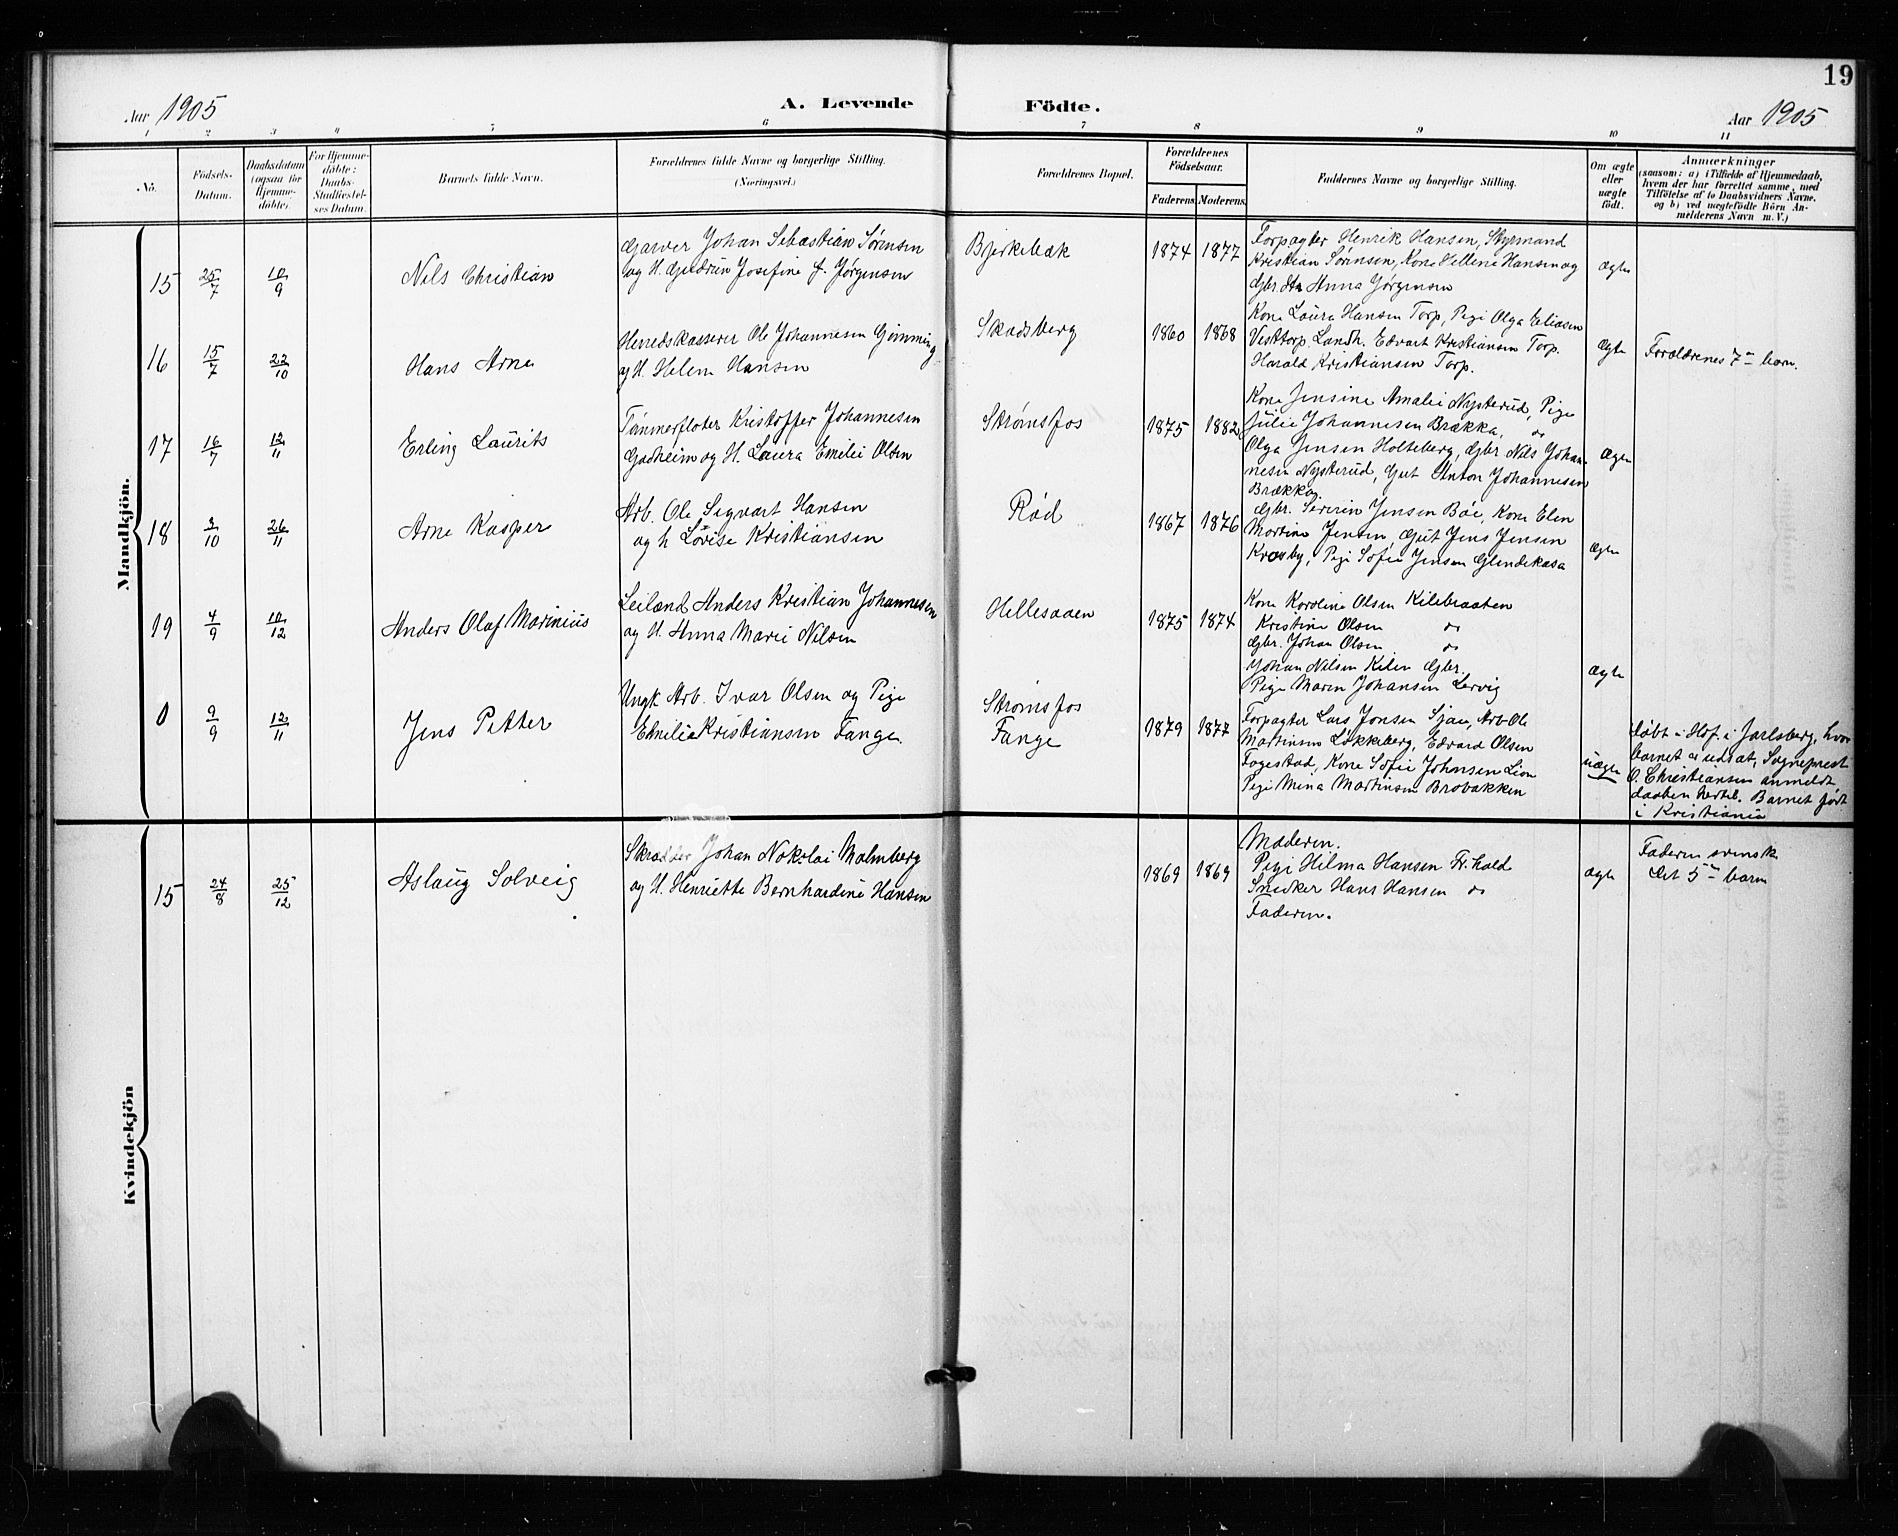 19
Aar 1905
A. Levende Födte.
Aar 1905
1 2 3 4 5 6 7 8 9 10 11
No.
Födsels-Datum.
Daabsdatum (ogsaa for Hjemme-döbte).
For Hjemme-döbte: Daabs-Stadfæstel-ses Datum.
Barnets fulde Navn.
Forældrenes fulde Navne og borgerlige Stilling.
(Næringsvei.)
Forældrenes Bopæl.
Forældrenes Födselsaar.
Faderens. Moderens.
Faddernes Navne og borgerlige Stilling.
Om ægte eller uægte födt.
Anmærkninger
(saasom: a) i Tilfælde af Hjemmedaab,
hvem der har forrettet samme, med
Tilföielse af to Daabsvidners Navne,
og b) ved uægtefödte Börn An-
melderens Navn m. V.)
Mandkjön.
15 25/7 10/9 Nils Christian
Garver Johan Sebastian Sørensen
og H. Gudrun Josefine f. Jørgensen
Bjerkebæk
1874 1877
Forpagter Henrik Hansen, Styrmand
Kristian Sørensen, Kone Helline Hansen og
Gbr. dtr Anna Jørgensen
ægte
16 15/7 22/10 Hans Arne
Herredskasserer Ole Johannesen Gimming
og H. Helene Hansen
Skodsberg
1860 1868
Kone Laura Hansen Torp, Pige Olga Eliasen
Vesttorp, Landh. Edvart Kristiansen Torp.
Harald Kristiansen Torp.
ægte
Forældrenes 7de barn.
17 16/7 12/11 Erling Laurits
Tømmerfløter Kristoffer Johannesen
Gadheim og H. Laura Emilie Olsen
Strømsfos
1875 1882
Kone Jensine Amalie Nysterud, Pige
Julie Johannesen Brække, do
Olga Jensen Holteberg, Gbr Nils Johan-
nesen Nysterud, Gut Anton Johannesen
Brække.
ægte
18 3/10 26/11 Arne Kasper
Arb. Ole Sigvart Hansen
og h Lovise Kristiansen
Rød
1867 1876
Gbr. Severin Jensen Bøe, Kone Elen
Martine Jensen, Gut Jens Jensen
Krosby, Pige Sofie Jensen Glendekasa
ægte
19 4/9 10/12 Anders Olaf Marinius
Leilænd Anders Kristian Johannesen
og H. Anna Marie Nilsen
Hellesaaen
1875 1874
Kone Karoline Olsen Kilebraaten
Kristine Olsen do
Gbr. Johan Olsen do
Johan Nilsen Kilen Gbr.
Pige Maren Johansen Lervig
ægte
0 9/9 12/11 Jens Petter
Ungk. Arb. Ivar Olsen og Pige
Emilie Kristiansen Fange.
Strømsfos
Fange
1879 1877
Forpagter Lars Jonsen Sjau, Arb Ole
Martinsen Løkkeberg, Edvard Olsen
Fagestad, Kone Sofie Johnsen Lien
Pige Mina Martinsen Brobakken
uægte
døbt i Hof i Jarlsberg, hvor
barnet er udsat, Sogneprest
O. Christiansen anmeldt
daaben hertil. Barnet født
i Kristiania
Kvindekjön
15 24/8 25/12 Aslaug Solveig
Skrædder Johan Nikolai Malmberg
og H. Henriette Bernhardine Hansen
1869 1869
Moderen.
Pige Hilma Hansen Fr.hald
Snedker Hans Hansen do
Faderen.
ægte
Faderen svensk
Det 5te barn